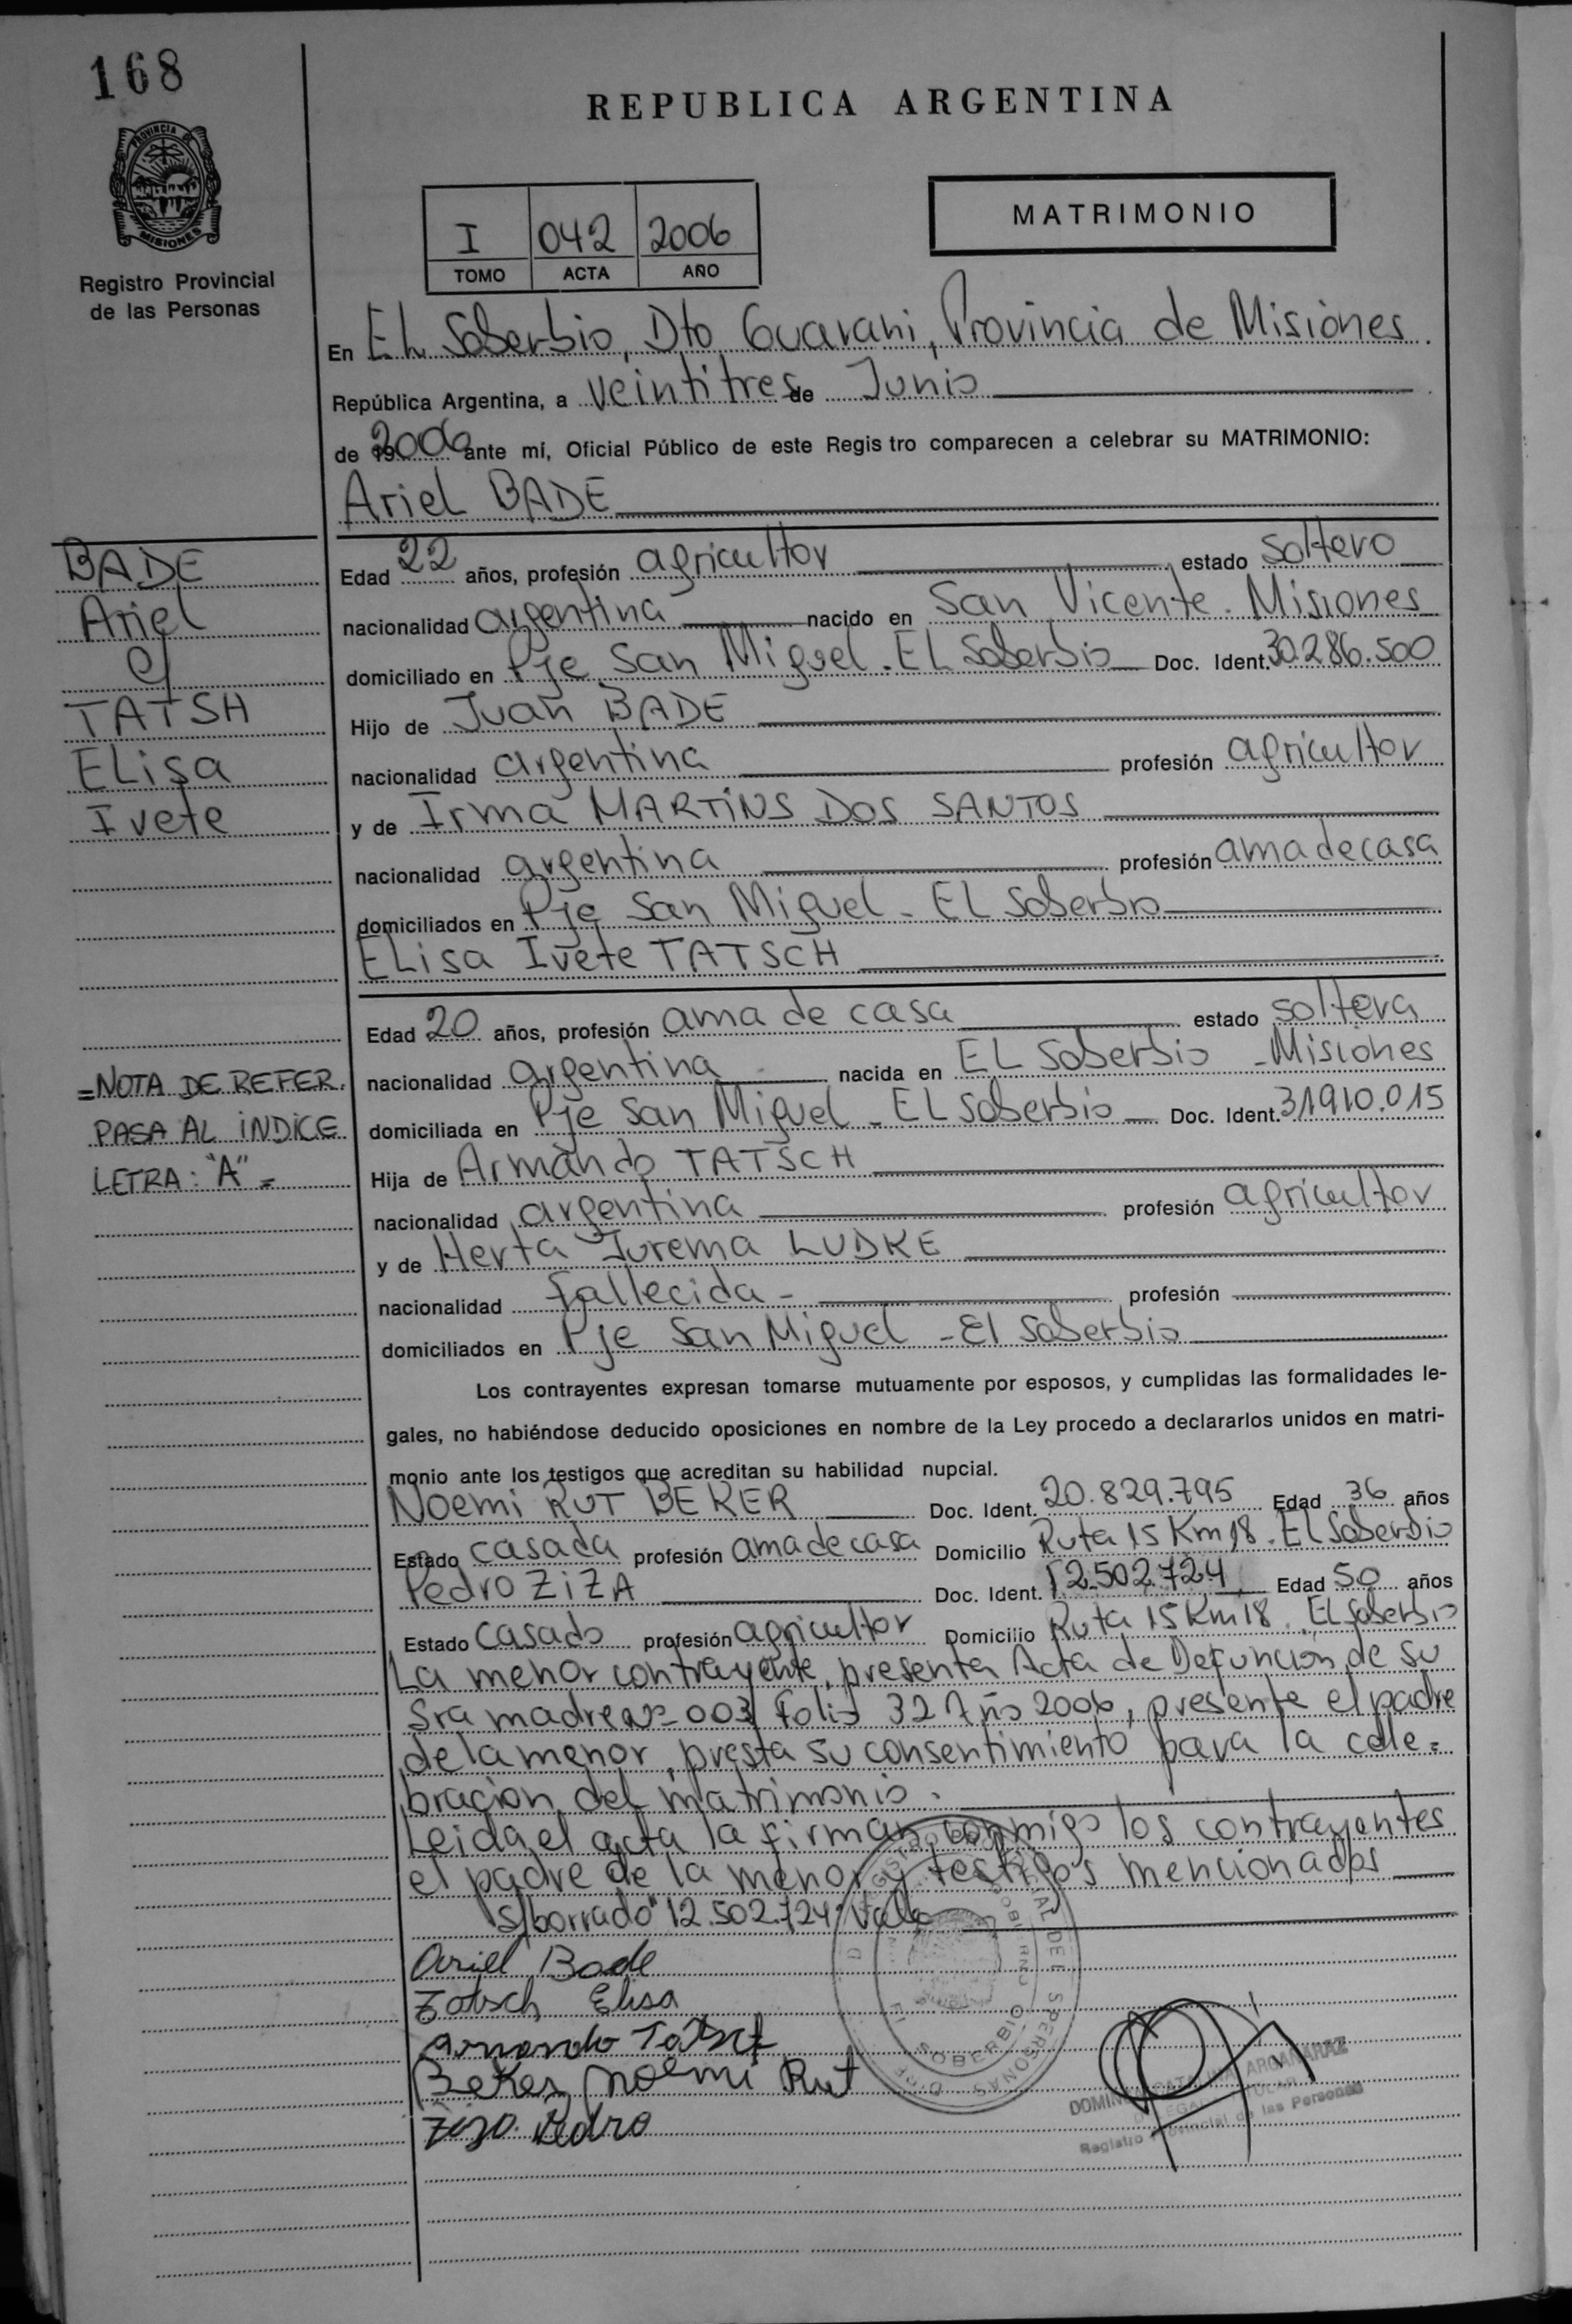 168
PROVINCIA DE
MISIONES
Registro Provincial
de las Personas
REPUBLICA ARGENTINA
I 042 2006
TOMO ACTA AÑO
MATRIMONIO
En EL Soberbio, Dto Guarani, Provincia de Misiones
República Argentina, a veintitres de Junio
de 2006 ante mí, Oficial Público de este Regis tro comparecen a celebrar su MATRIMONIO:
Ariel BADE
BADE
Ariel
c/
TATSH
ELisa
Ivete
Edad 22 años, profesión agricultor estado soltero
nacionalidad argentina nacido en San Vicente. Misiones
domiciliado en Pje San Miguel. EL Soberbio Doc. Ident. 30.286.500
Hijo de Juan BADE
nacionalidad argentina profesión agricultor
y de Irma MARTINS DOS SANTOS
nacionalidad argentina profesión ama de casa
domiciliados en Pje San Miguel - EL Soberbio
ELisa Ivete TATSCH
Edad 20 años, profesión ama de casa estado soltera
nacionalidad argentina nacida en EL Soberbio - Misiones
domiciliada en Pje San Miguel - EL Soberbio Doc. Ident. 31.910.015
Hija de Armando TATSCH
nacionalidad argentina profesión agricultor
y de Herta Jurema LUDKE
nacionalidad fallecida - profesión
domiciliados en Pje San Miguel - El Soberbio
=NOTA DE REFER.
PASA AL INDICE
LETRA: "A"=
Los contrayentes expresan tomarse mutuamente por esposos, y cumplidas las formalidades le-
gales, no habiéndose deducido oposiciones en nombre de la Ley procedo a declararlos unidos en matri-
monio ante los testigos que acreditan su habilidad nupcial.
Noemi RUT BEKER Doc. Ident. 20.829.795 Edad 36 años
Estado casada profesión ama de casa Domicilio Ruta 15 Km 18. EL Soberbio
Pedro ZiZA Doc. Ident. 12.502.724 Edad 50 años
Estado casado profesión agricultor Domicilio Ruta 15 Km 18. El Soberbio
La menor contrayente, presenta Acta de Defunción de su
Sra madre Nº 003 Folio 32 Año 2006, presente el padre
de la menor, presta su consentimiento para la cele=
bración del matrimonio.
Leida el acta la firman conmigo los contrayentes
el padre de la menor y testigos mencionados
S/borrado "12.502.724" Vale
Ariel Bade
Tatsch Elisa
Armando Tatsch
Beker Noemi Rut
Ziza Pedro
SOBERBIO
Registro Provincial de las Personas